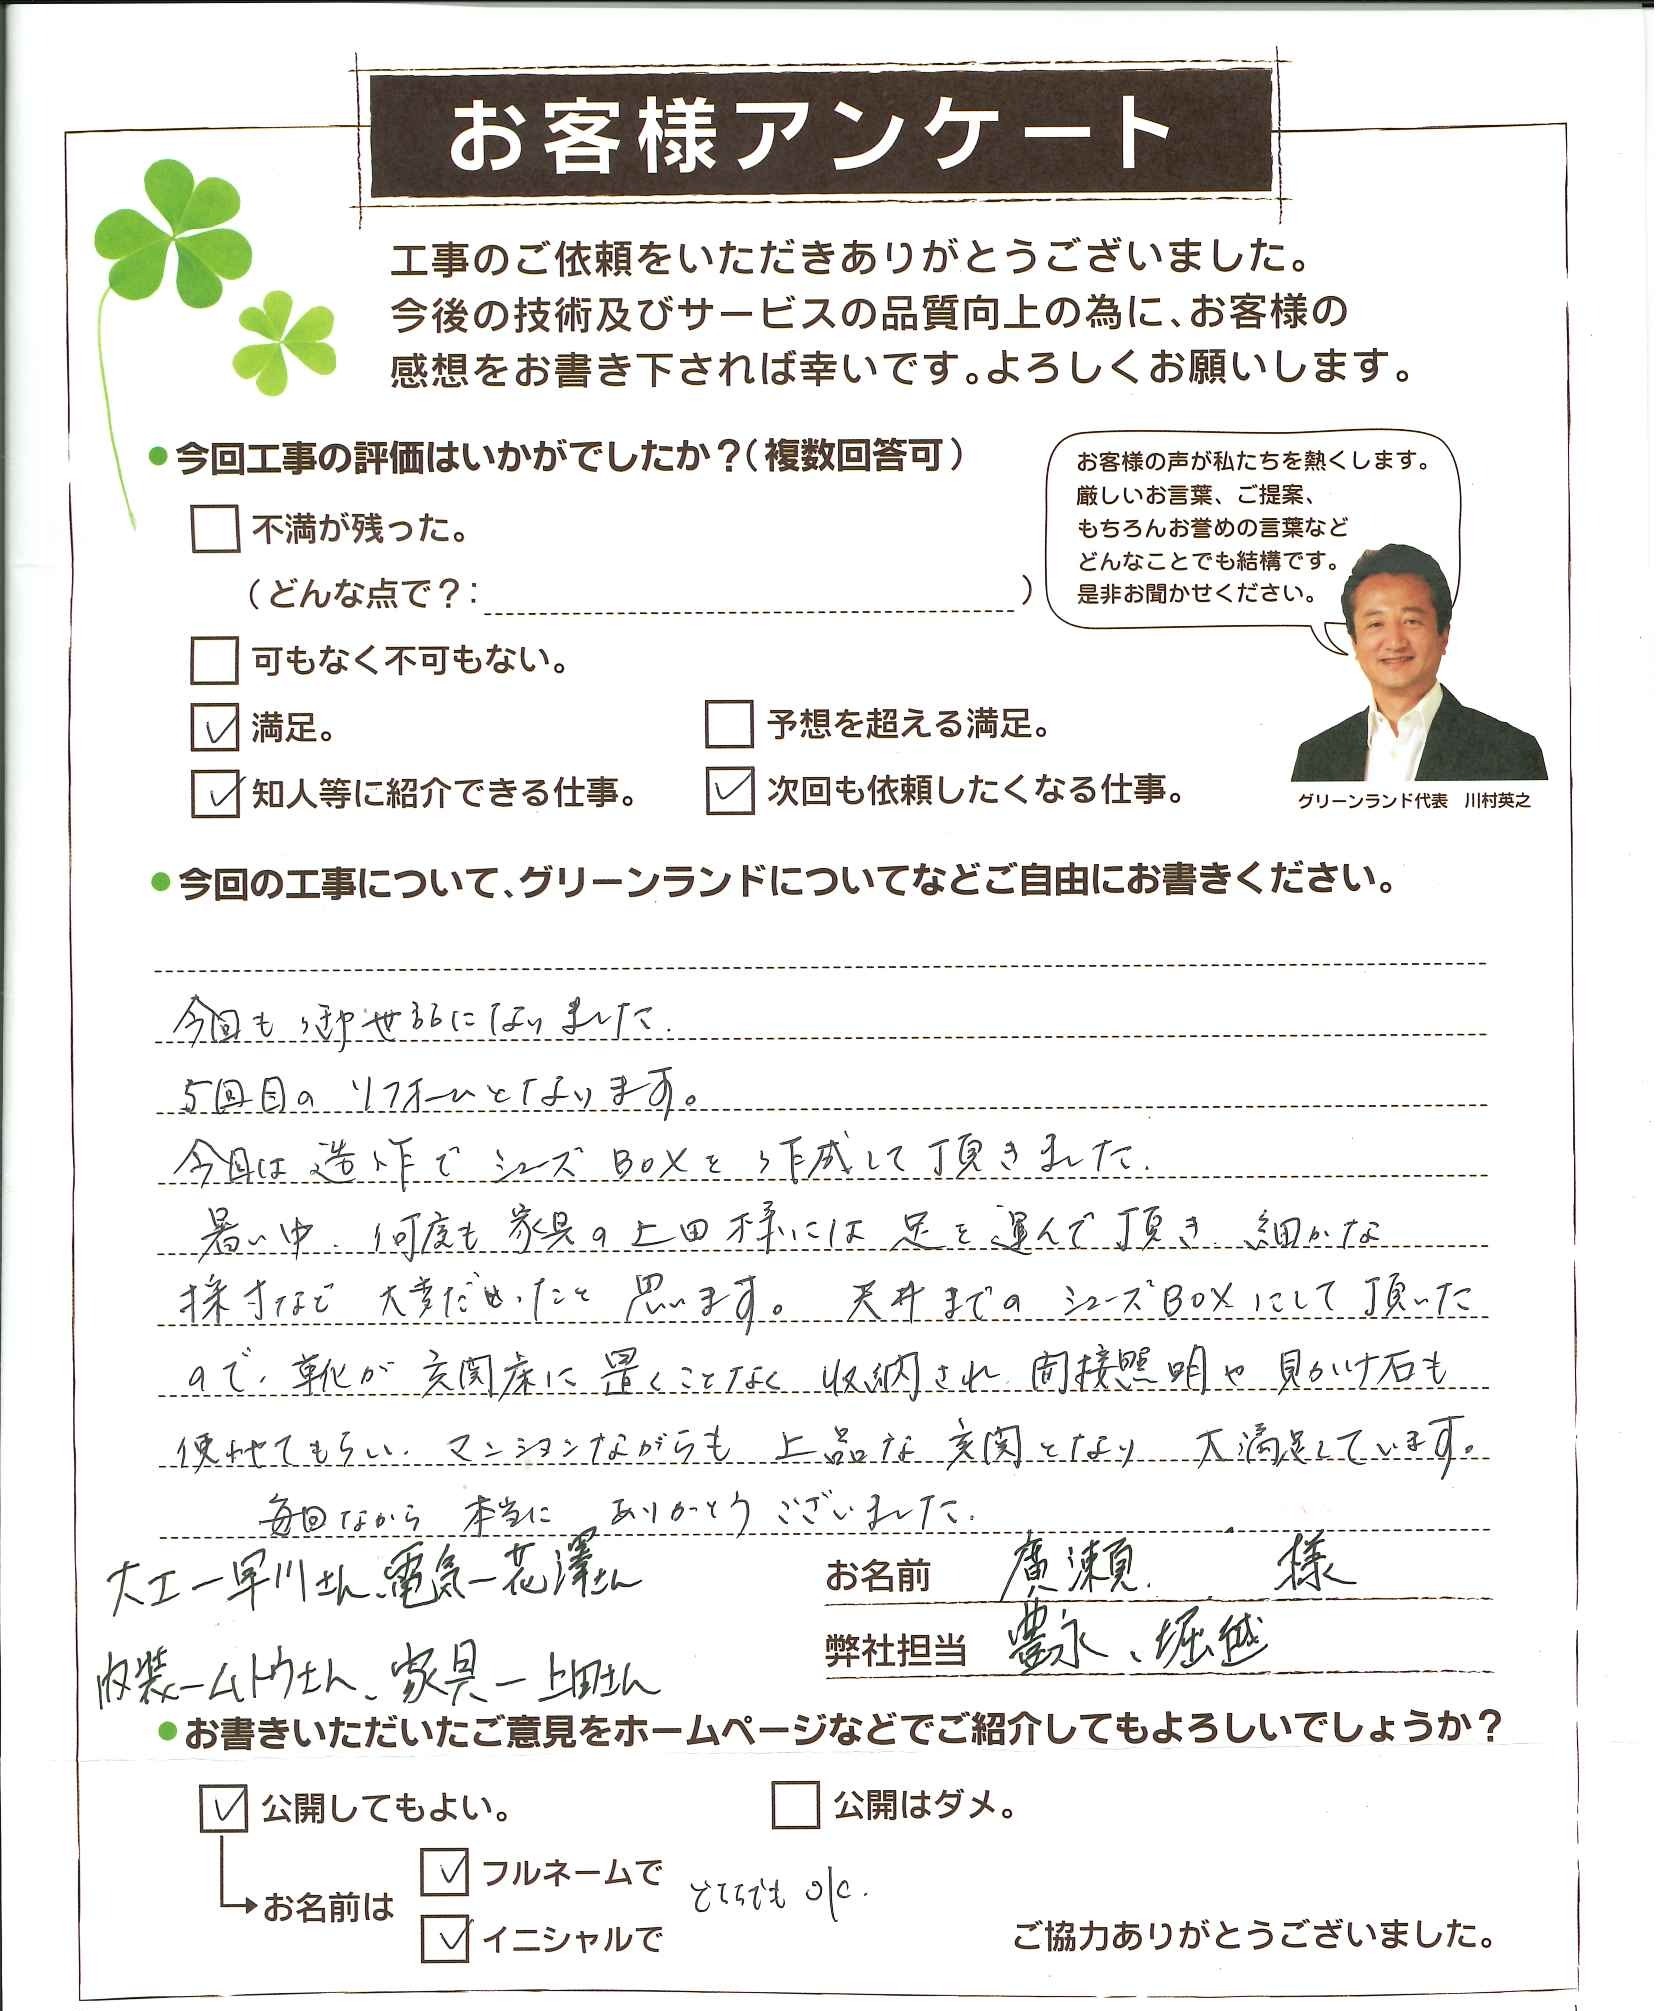 お客様アンケート
工事のご依頼をいただきありがとうございました。
今後の技術及びサービスの品質向上の為に、お客様の
感想をお書き下されば幸いです。よろしくお願いします。
●今回工事の評価はいかがでしたか？（複数回答可）
不満が残った。
（どんな点で？：　）
可もなく不可もない。
満足。
予想を超える満足。
知人等に紹介できる仕事。
次回も依頼したくなる仕事。
お客様の声が私たちを熱くします。
厳しいお言葉、ご提案、
もちろんお誉めの言葉など
どんなことでも結構です。
是非お聞かせください。
グリーンランド代表　川村英之
●今回の工事について、グリーンランドについてなどご自由にお書きください。
今回も御世話になりました。
5回目のリフォームとなります。
今回は造作でシューズBOXを作成して頂きました。
暑い中、何度も家具の上田様には足を運んで頂き、細かな
採寸など大変だったと思います。天井までのシューズBOXにして頂いた
ので、靴が玄関床に置くことなく収納され、間接照明や見かけ石も
使わせてもらい、マンションながらも上品な玄関となり大満足しています。
毎回ながら本当にありがとうございました。
大工ー早川さん、電気ー花澤さん
内装ームトウさん、家具ー上田さん
お名前　廣瀬　様
弊社担当　豊永、堀越
●お書きいただいたご意見をホームページなどでご紹介してもよろしいでしょうか？
公開してもよい。
公開はダメ。
お名前は
フルネームで
イニシャルで
どちらでもOK.
ご協力ありがとうございました。